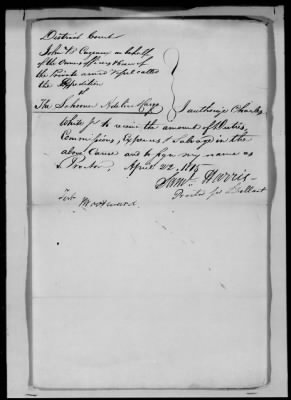 District Court
John B. on behalf
of the Owners officers & crew of
the Private armed vessel called
the Expedition
vs
The Schooner & Cargo
I authorize Charles
White Jr to receive the amount of Duties,
Commissions, Expenses & Salvage in the
above Cause and to sign my name as
Proctor, April 22, 1815
Saml. Harris
Proctor for Libellant
Test